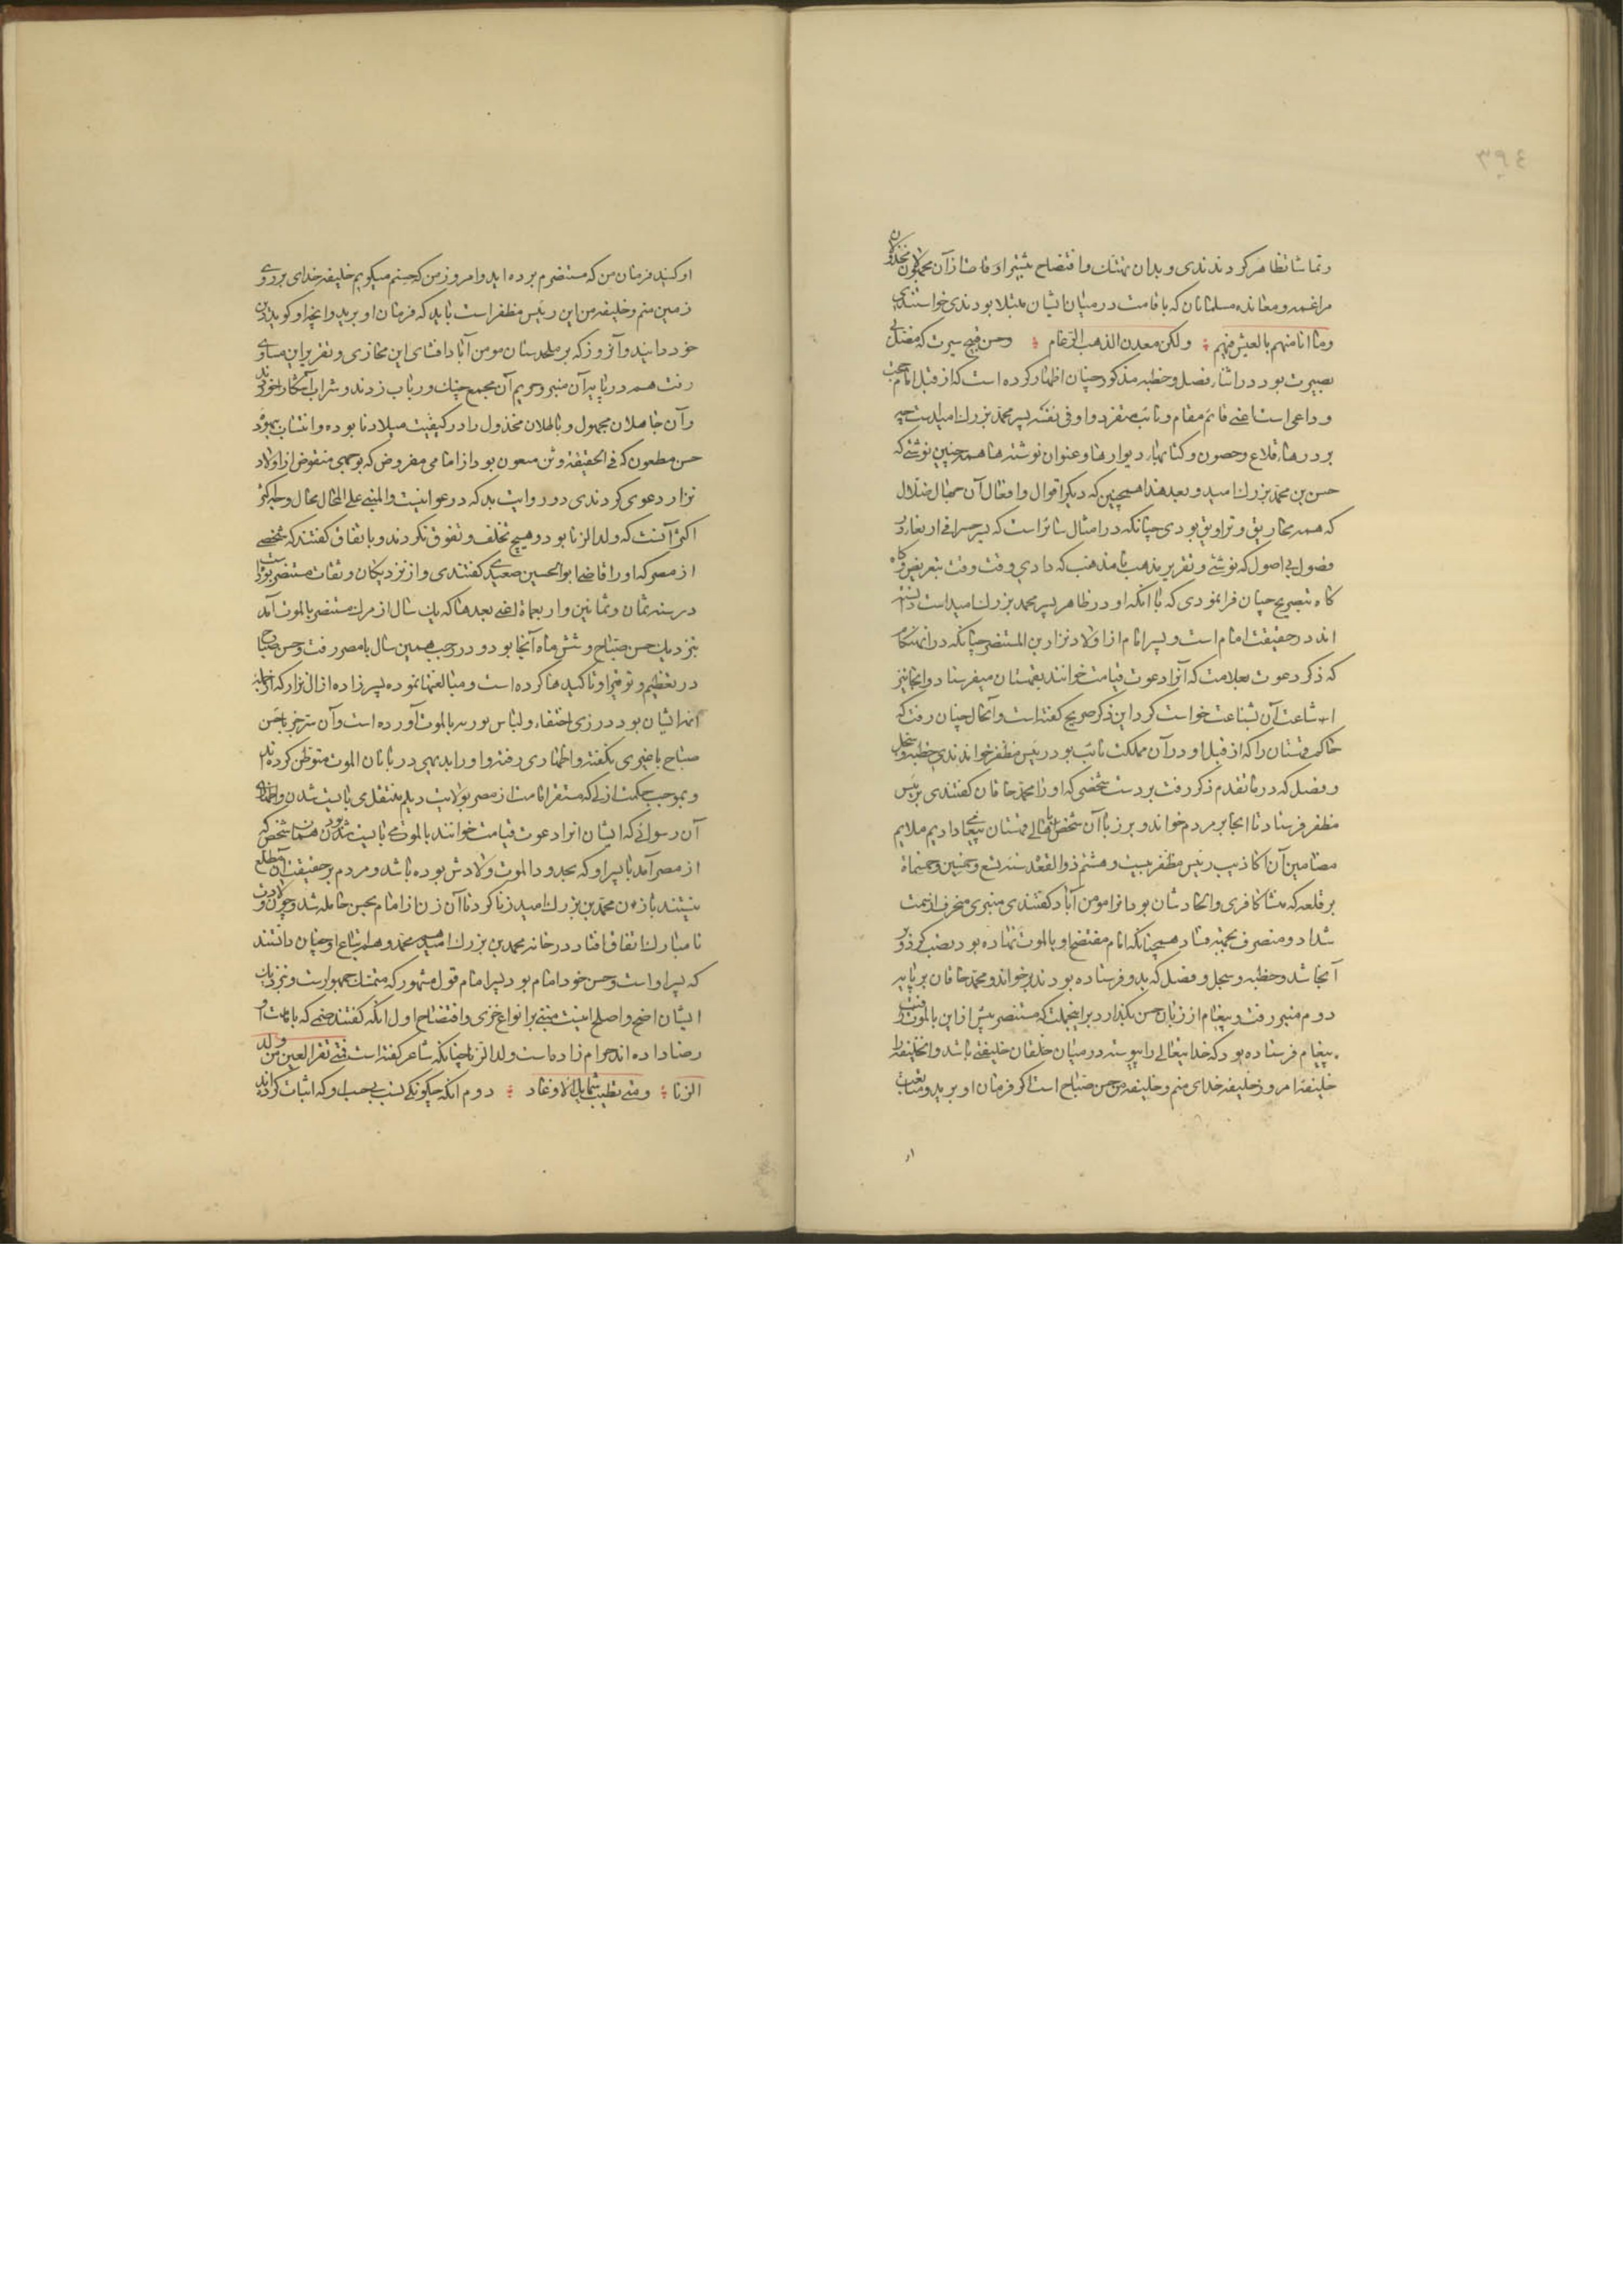 ٣٩٤
وتماشا تظاهر کردندی و بدان تهتک وافتضاح بیشتر اوقات از آن مجهولان مخذولان
مراغمه و معانده مسلمانان که باقامت در میان ایشان مبتلا بودندی خواستندی
وما انا منهم بالعیش فیهم ولکن معدن الذهب الرغام وحسن قبیح سیرت که مضل بی
بصیرت بود در اثناء فصل وخطبه مذکور چنان اظهار کرده است که از قبل امام حجت
و داعی است اعنی قایم مقام و نایب متفرد او و فی نفسه پسر محمد بزرک امید است چه
بر درهاء قلاع و حصون و کتابهاء دیوارها و عنوان نوشته‌ها همه چنین نوشتی که
حسن بن محمد بزرک امید و بعد هذا همچنین که دیکر اقوال و افعال آن جهال ضلال
که همه مخاریق و تزاویق بودی چنانکه در امثال سائر است که یسر حسوا فی ارتغاء در
فصول بی اصول که نوشتی و تقریر مذهب نامذهب که دادی وقت وقت بتعریض و کاه
کاه بتصریح چنان فرانمودی که با انکه او در ظاهر پسر محمد بزرک امید است دانسته
اند در حقیقت امام است و پسر امام از اولاد نزار بن المستنصر چنانکه در انهنکام
که ذکر دعوت بعلامت که آنرا دعوت قیامت خوانند بقهستان میفرستاد و انجا نیز
اشاعت آن بشناعت خواست کرد این ذکر صریح کفته است و انحال چنان رفت که
حاکم قهستان را که از قبل او در آن مملکت نایب بود رییس مظفر خواندندی خطبه و سجل
و فصل که در ماتقدم ذکر رفت بر دست شخصی که او را محمد خاقان کفتندی بریس
مظفر فرستاد تا انجا بر مردم خواند و بر زبان آن شخص باهالی قهستان پیغام داد بهم ملایم
مضامین آن اکاذیب رییس مظفر بیست و هشتم ذوالقعده سنه تسع و خمسین وخمسمأة
بر قلعه که منشأ کافری و الحادشان بود انرا مومن آباد کفتندی منبری منحرف از سمت
سداد و منصرف بجهة فساد همچنانکه امام مفتضح او بالموت نهاده بود نصب کرد و بر
آنجا شد و خطبه و سجل و فصل که بدو فرستاده بودند برخواند و محمد خاقان بر پایه
دوم منبر رفت و پیغام از زبان حسن بگذارد بر اینجملت که مستنصر پیش از این بالموت
پیغام فرستاده بود که خدایتعالی را پیوسته در میان خلقان خلیفتی باشد و آن خلیفه را
خلیفة امروز خلیفه خدای منم و خلیفه من حسن صباح است اکر فرمان او برید و متابعت
او
او کنید فرمان من که مستنصرم برده اید و امروز من که حسنم میکویم خلیفه خدای بر روی
زمین منم و خلیفه من این رئیس مظفر است باید که فرمان او برید و انچه او کوید دین
خود دانید و آنروز که بر ملحدستان مومن آباد افشای این مخازی و تقریر این مساوی
رفت هم در پایه آن منبر و حریم آن مجمع چنک و رباب زدند و شراب آشکارا خوردند
و آن جاهلان مجهول و باطلان مخذول را در کیفیت میلاد نابوده و انتساب بیهوده
حسن مطعون که فی الحقیقه وثن ملعون بود از امامی مفروض که بوجهی منقوض از اولاد
نزار دعوی کردندی دو روایت بد که در غوانیت والمبنی علی المحال محال وجه اکثر
اکثر آنست که ولد الزنا بود و هیچ تخلف و تفوق نکردند و باتفاق کفتند که شخصی
از مصر که او را قاضی ابوالحسین صعیدی کفتندی و از نزدیکان و ثقات مستنصر بود
در سنه ثمان و ثمانین و اربعمأة اعنی بعدها که یک سال از مرک مستنصر بالموت آمد
بنزدیک حسن صباح و شش ماه آنجا بود و در رجب همین سال با مصر رفت و حسن صباح
در تعظیم و توقیر او تاکیدها کرده است و مبالغتها نموده پسر زاده از ال نزار که از جمله
ائمه ایشان بود در زی اختفاء و لباس بورسر بالموت آورده است و آن سر جز با حسن
صباح با غیری نکفته و اظهاری نرفته و او را بدیهی در پایان الموت متوطن کرده‌اند
و بموجب حکمت ازلی که مستقر امامت از مصر بولایت دیلم منتقل می بایست شدن و اظهار
آن رسوائی که ایشان انرا دعوت قیامت خوانند بالموت می بایست بودن همان شخص که
از مصر آمد یا پسر او که بحدود الموت ولادتش بوده باشد و مردم بر حقیقت آن مطلع
نیستند با زن محمد بن بزرک امید زنا کرد تا آن زن از امام بحسن حامله شد و چون ولادت
نامبارک اتفاق افتاد در خانه محمد بن بزرک امید هم محمد و هم اتباع او چنان دانستند
که پسر او است و حسن خود امام بود پسر امام قول مشهور که متمسک جمهورست و نزدیک
ایشان اضح و اصلح اینست مبنی بر انواع خزی و افتضاح اول انکه کفتند صنمی که بامامت او
رضا داده اند حرام زاده است ولد الزنا چنانکه شاعر کفته است فمتی تقر العین من ولد
الزنا ومتی تطیب شمایل الاوغاد دوم انکه چکونکی نسب بی حسب او که اثبات کرده اند